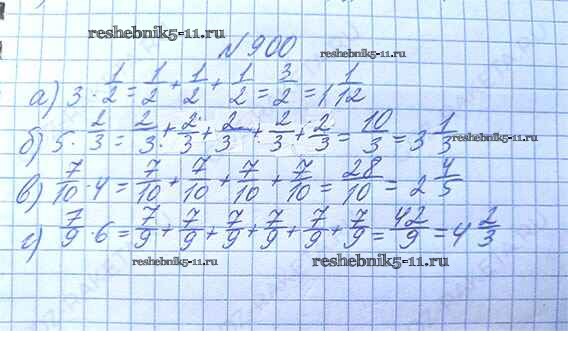 reshebnik5-11.ru
№900
reshebnik5-11.ru
а) 3 · 1/2 = 1/2 + 1/2 + 1/2 = 3/2 = 1 1/12
б) 5 · 2/3 = 2/3 + 2/3 + 2/3 + 2/3 + 2/3 = 10/3 = 3 1/3
в) 7/10 · 4 = 7/10 + 7/10 + 7/10 + 7/10 = 28/10 = 2 4/5
г) 7/9 · 6 = 7/9 + 7/9 + 7/9 + 7/9 + 7/9 + 7/9 = 42/9 = 4 2/3
reshebnik5-11.ru
reshebnik5-11.ru